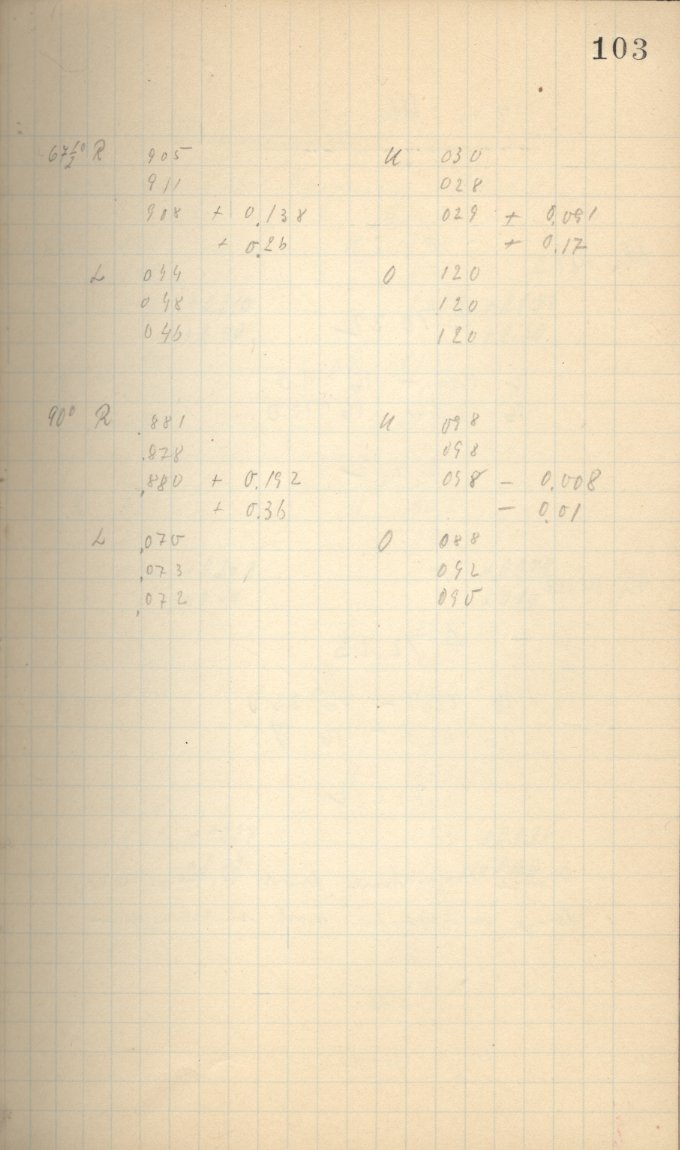 103
67½° R 905 U 030
911 028
908 + 0.138 029 + 0.091
+ 0.26 + 0.17
L 044 O 120
048 120
046 120
90° R .881 U 098
.878 098
.880 + 0.192 098 - 0.008
+ 0.36 - 0.01
L .070 O 088
.073 092
.072 090